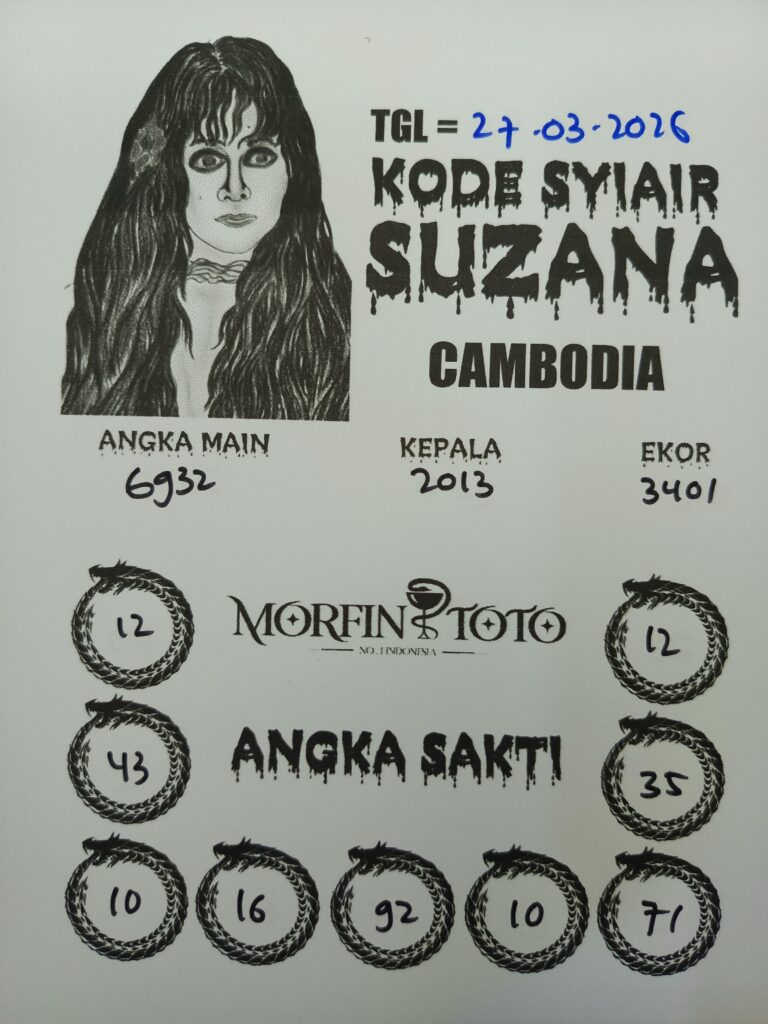 TGL = 27-03-2026
KODE SYIAIR
SUZANA
CAMBODIA
ANGKA MAIN KEPALA EKOR
6932 2013 3401
12 MORFIN TOTO 12
NO. 1 INDONESIA
43 ANGKA SAKTI 35
10 16 92 10 71